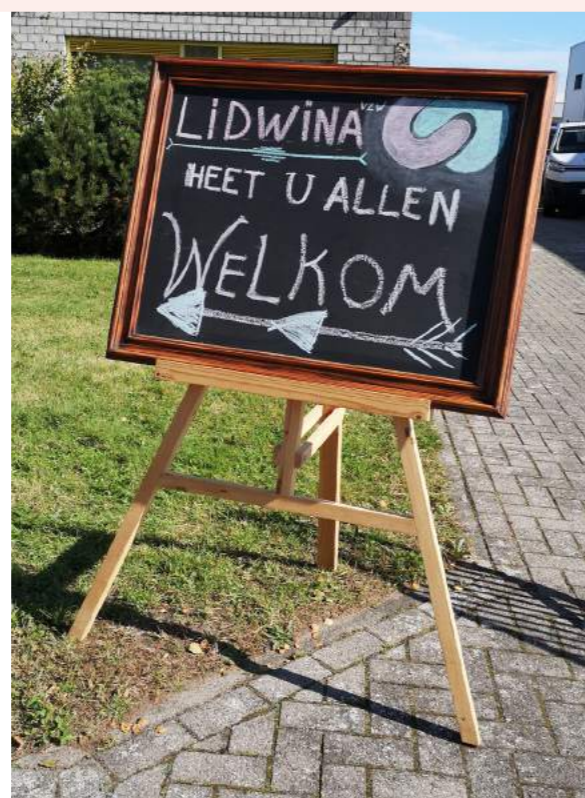 LiDWiNA VZW
HEET U ALLEN
WELKOM